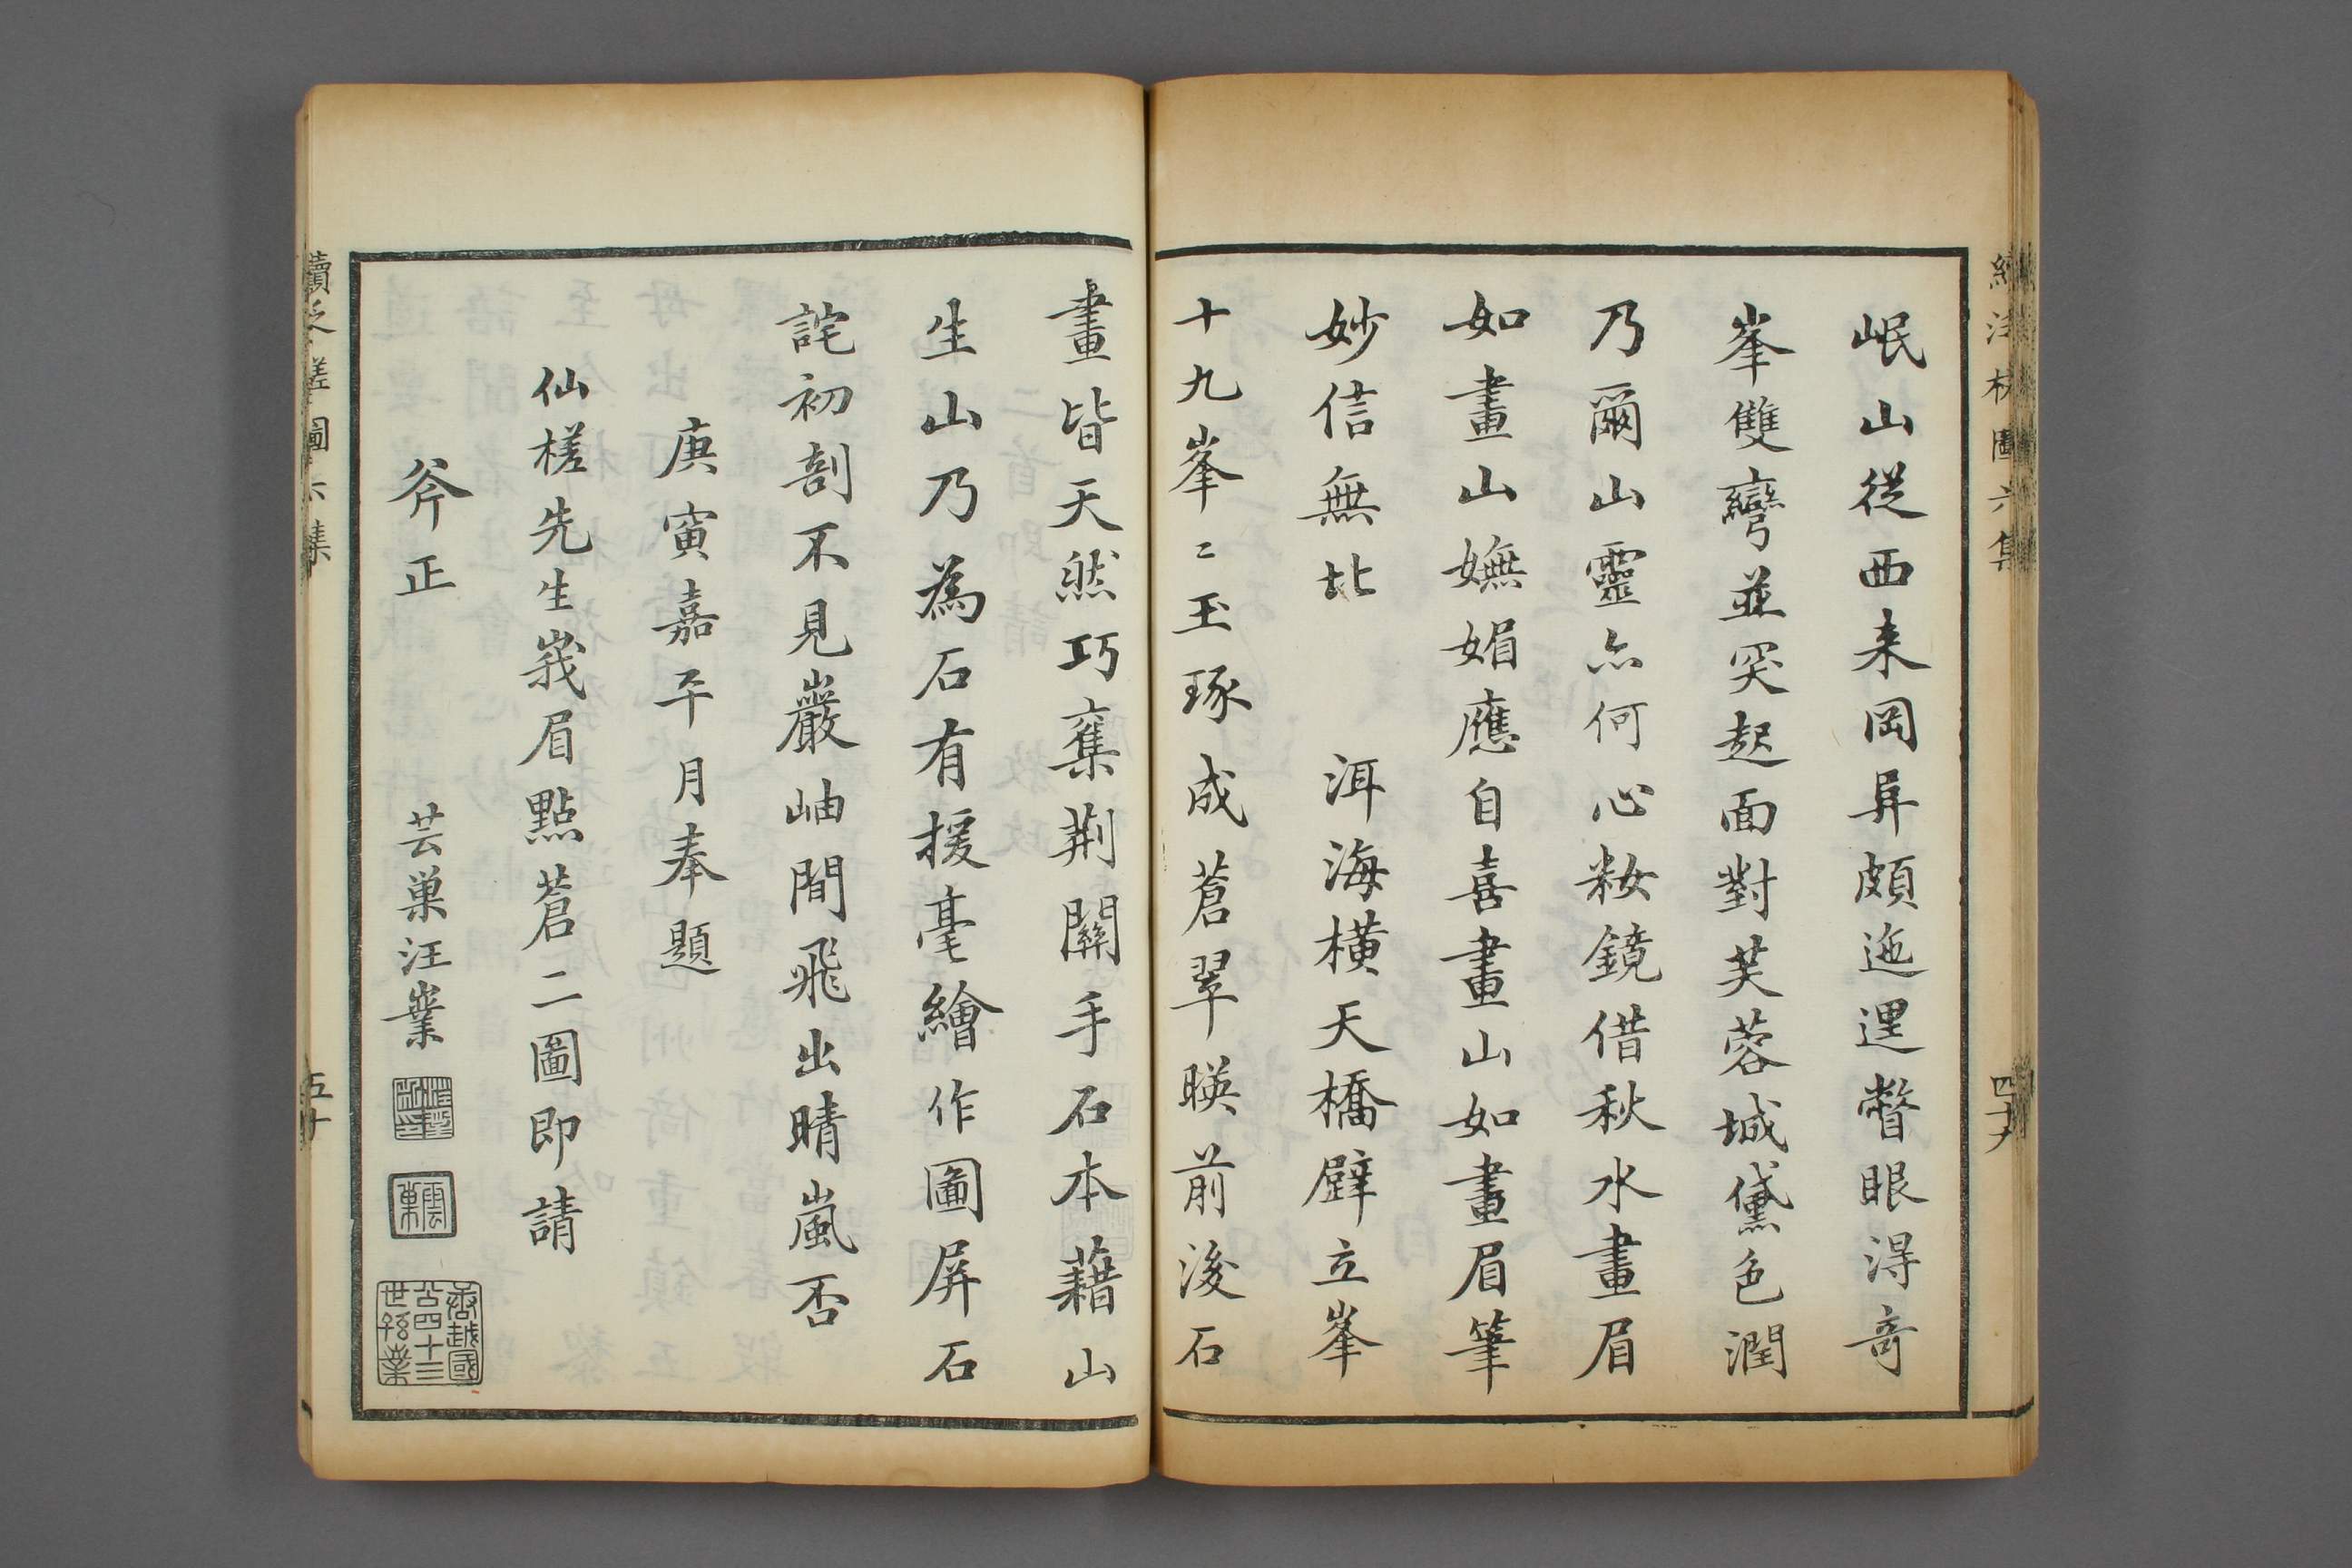 岷山從西来岡阜頗迤逦瞥眼淂竒
峯雙彎並突起面對芙蓉城黛色潤
乃爾山靈亦何心粧鏡借秋水畫眉
如畫山嫵媚應自喜畫山如畫眉筆
妙信無比　洱海橫天橋壁立峯
十九峯〻玉琢成蒼翠暎前後石
畫皆天然巧奪荆關手石本藉山
生山乃為石有援毫繪作圖屏石
詫初剖不見巖岫間飛出晴嵐否
庚寅嘉平月奉題
仙槎先生峩眉點蒼二圖即請
斧正
芸巢汪業
雲巢
唐越國公四十三世孫業
續泛槎圖六集
四十九
續泛槎圖六集
五十